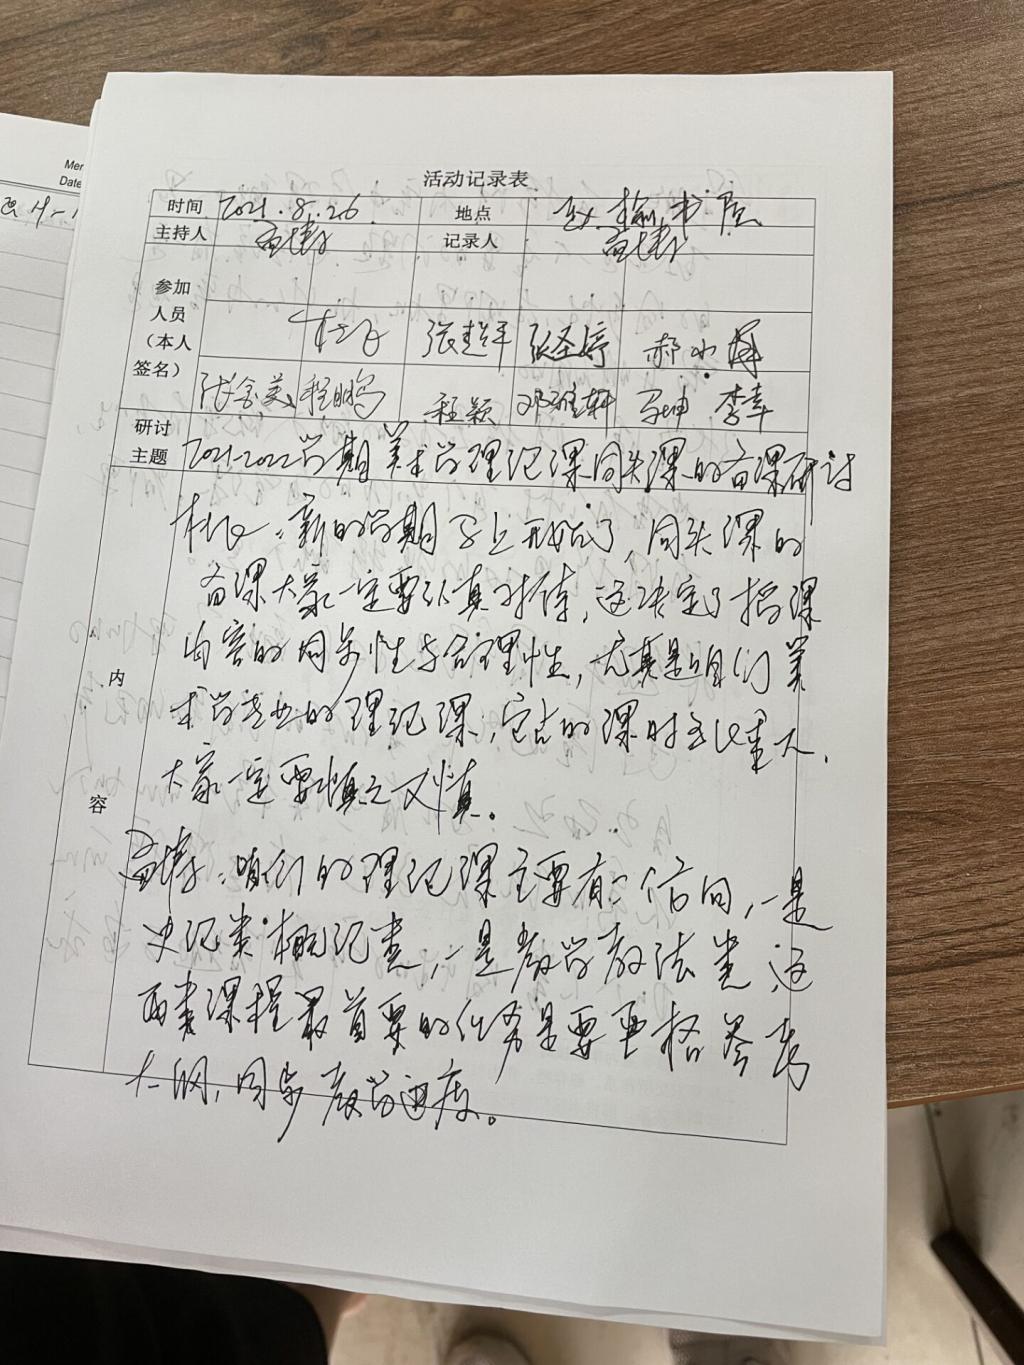 Mer
Date
活动记录表
时间 2021.8.26 地点 书店
主持人 记录人
参加
人员
（本人
签名）
张楚洋 张圣婷 郝水
张含美 程鹏鸟 程颖 邓雅轩 马坤 李幸
研讨
主题 2021-2022学期美术学理论课同头课的备课研讨
内
容
新的学期马上开始了，同头课的
备课大家一定要认真对待，这决定了授课
内容的同步性与合理性，尤其是咱们美
术学专业的理论课，它占的课时重大，
大家一定要慎之又慎。
咱们的理论课主要有二个方向，一是
史论类·概论类，一是教学教法类，这
两类课程最首要的任务是要严格参考
大纲，同步教学进度。